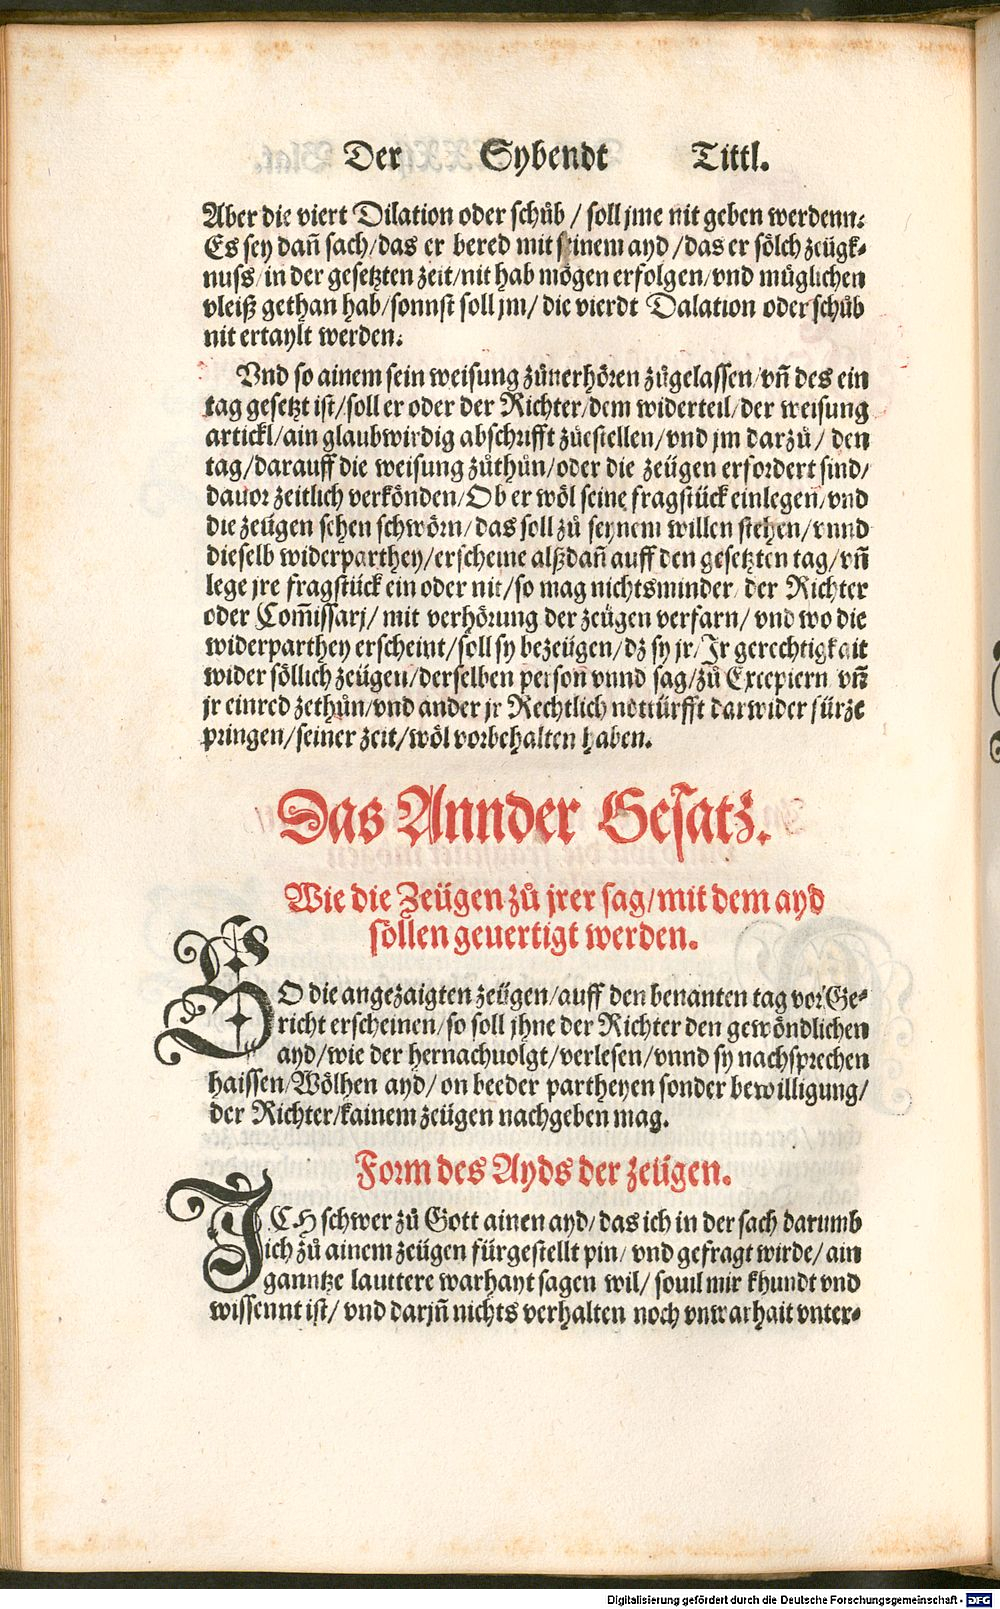 Der Sybendt Tittl.
Aber die viert Dilation oder schůb / soll jme nit geben werdenn:
Es sey dañ sach / das er bered mit seinem ayd / das er sölch zeügk-
nuss / in der gesetzten zeit / nit hab mögen erfolgen / vnd müglichen
vleiß gethan hab / sonnst soll jm / die vierdt Dalation oder schůb
nit ertaylt werden.
Vnd so ainem sein weisung zůuerhören zůgelassen / vñ des ein
tag gesetzt ist / soll er oder der Richter / dem widerteil / der weisung
artickl / ain glaubwirdig abschrifft zůestellen / vnd jm darzů / den
tag / darauff die weisung zůthůn / oder die zeügen erfordert sind /
dauor zeitlich verkönden / Ob er wöl seine fragstück einlegen / vnd
die zeügen sehen schwörn / das soll zů seynem willen stehen / vnnd
dieselb widerparthey / erscheine alßdañ auff den gesetzten tag / vñ
lege jre fragstück ein oder nit / so mag nichtsminder / der Richter
oder Com̃issarj / mit verhörung der zeügen verfarn / vnd wo die
widerparthey erscheint / soll sy bezeügen / dz sy jr / Ir gerechtigkait
wider söllich zeügen / derselben person vnnd sag / zů Excepiern vñ
jr einred zethůn / vnd ander jr Rechtlich notturfft darwider fürze
pringen / seiner zeit / wöl vorbehalten haben.
Das Annder Gesatz.
Wie die Zeügen zů jrer sag / mit dem ayd
söllen geuertigt werden.
WO die angezaigten zeügen / auff den benanten tag vor Ge-
richt erscheinen / so soll jhne der Richter den gewöndlichen
ayd / wie der hernachuolgt / verlesen / vnnd sy nachsprechen
haissen / Wölhen ayd / on beeder partheyen sonder bewilligung /
der Richter / kainem zeügen nachgeben mag.
Form des Ayds der zeügen.
ICH schwer zů Gott ainen ayd / das ich in der sach darumb
ich zů ainem zeügen fürgestellt pin / vnd gefragt wirde / ain
ganntze lauttere warhayt sagen wil / souil mir khundt vnd
wissennt ist / vnd darjñ nichts verhalten noch vnwarhait vnter-
Digitalisierung gefördert durch die Deutsche Forschungsgemeinschaft - DFG